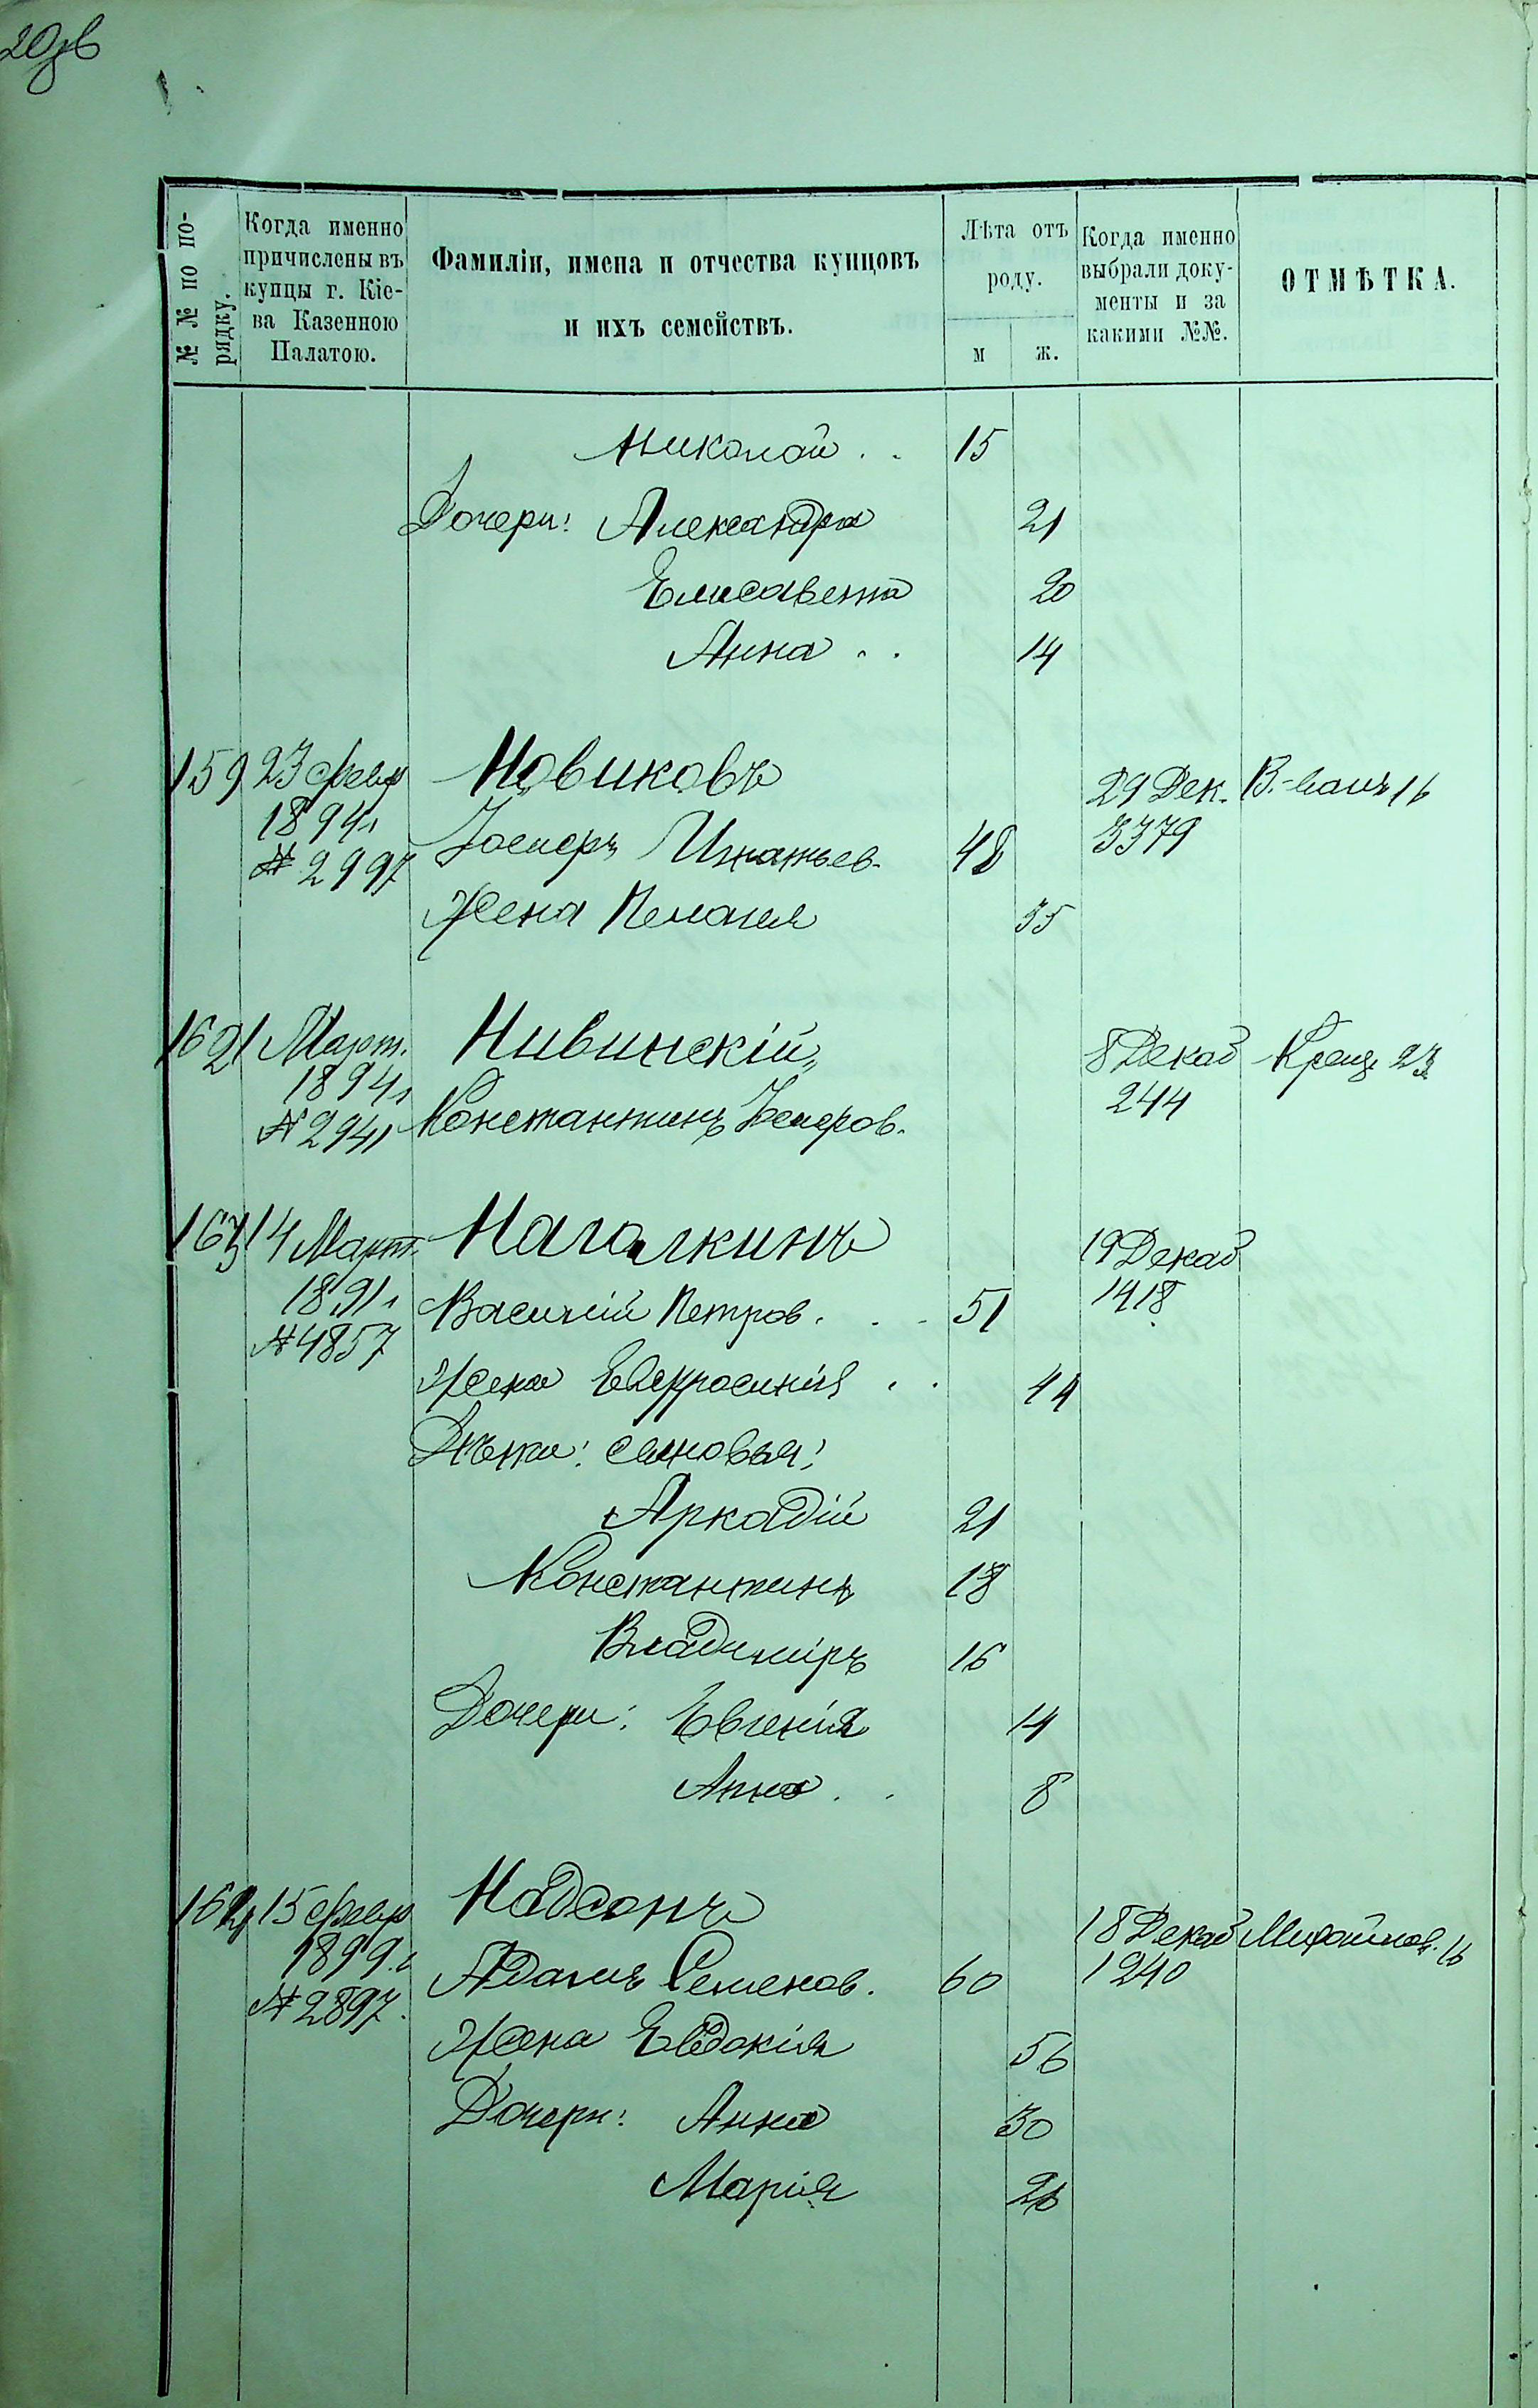 № № по по-
рядку.
Когда именно
причислены въ
купцы г. Кіе-
ва Казенною
Палатою.
Фамиліи, имена и отчества купцовъ
и ихъ семействъ.
Лѣта отъ
роду.
м ж.
Когда именно
выбрали доку-
менты и за
какими №№.
ОТМѢТКА.
Николай . . 15
Дочери: Александра 21
Елисавета 20
Анна . . 14
159 23 февр Новиковъ 29 Дек.
1894 3379
№ 2997 Игнатьев. 48
Жена Пелагея 35
1 Март. Нивинскій 8 Декаб Крещ 23
1894 244
№ 2941 Константинъ
14 Март. Нагалкинъ 19 Декаб
1891 Василій Петров. . . 51 1418
№ 4857
Жена Евфросинія . . 44
Дѣти: сыновья:
Аркадій 21
Константинъ 18
Владиміръ 16
Дочери: Евгенія 14
Анна . . 8
15 февр Надсонъ 18 Декаб
1899 Адамъ Семенов. 60 1240
№ 2897.
Жена Евдокія 56
Дочери: Анна 30
Марія 26